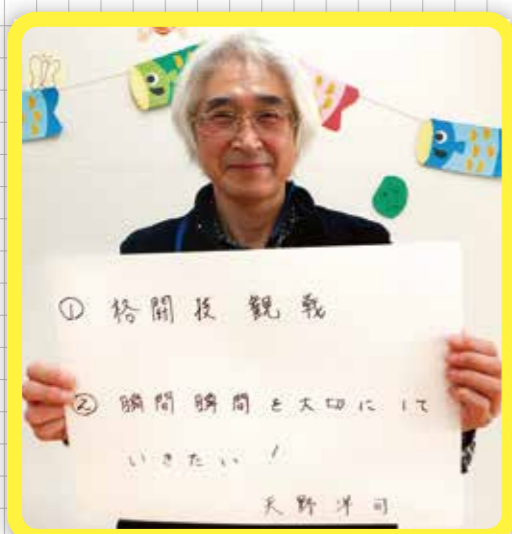 ① 格闘技 観戦
② 瞬間瞬間を大切にして
いきたい!
天野洋司